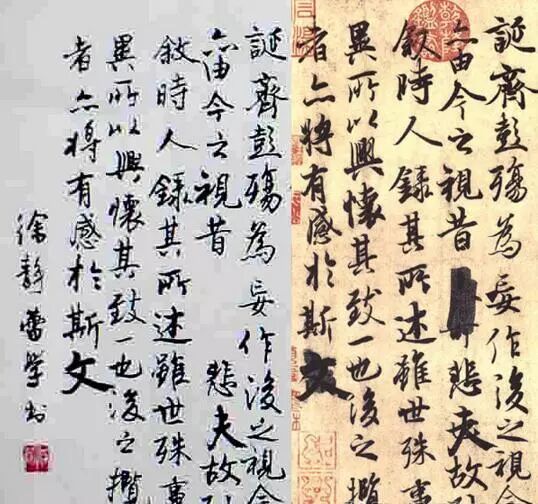 誕齊彭殤為妄作後之視今
亦由今之視昔悲夫故列
敘時人錄其所述雖世殊事
異所以興懷其致一也後之攬
者亦將有感於斯文
徐靜蕾学书
誕齊彭殤為妄作後之視今
亦由今之視昔悲夫故列
敘時人錄其所述雖世殊事
異所以興懷其致一也後之攬
者亦將有感於斯文